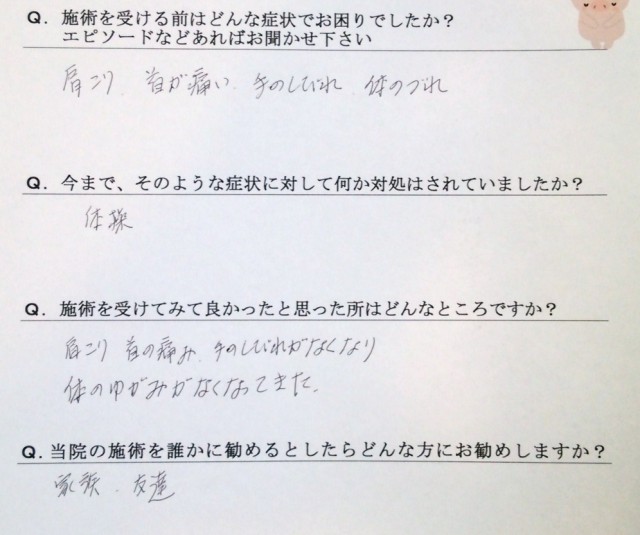 Q. 施術を受ける前はどんな症状でお困りでしたか？
エピソードなどあればお聞かせ下さい
肩こり 首が痛い 手のしびれ 体のづれ
Q. 今まで、そのような症状に対して何か対処はされていましたか？
体操
Q. 施術を受けてみて良かったと思った所はどんなところですか？
肩こり 首の痛み、手のしびれがなくなり
体のゆがみがなくなってきた。
Q. 当院の施術を誰かに勧めるとしたらどんな方にお勧めしますか？
家族、友達